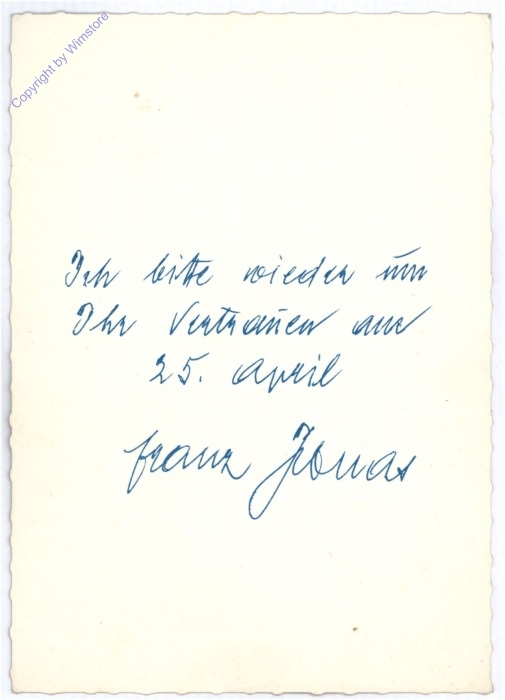 Copyright by Wimstore
Ich bitte wieder um
Ihr Vertrauen am
25. April
Franz Jonas